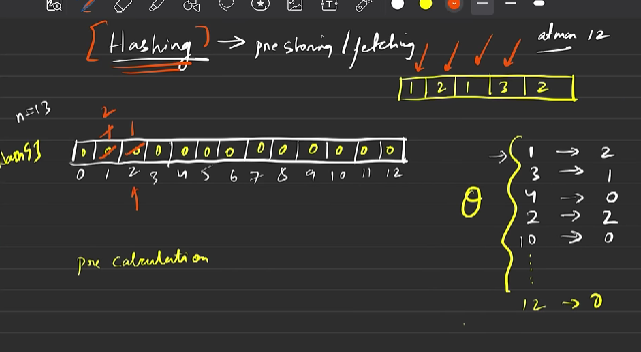 [Hashing] → pre storing / fetching
12
1 2 1 3 2
n=13
2
1
0 0 0 0 0 0 0 0 0 0 0 0 0
0 1 2 3 4 5 6 7 8 9 10 11 12
pre calculation
Q
1 → 2
3 → 1
4 → 0
2 → 2
10 → 0
12 → 0